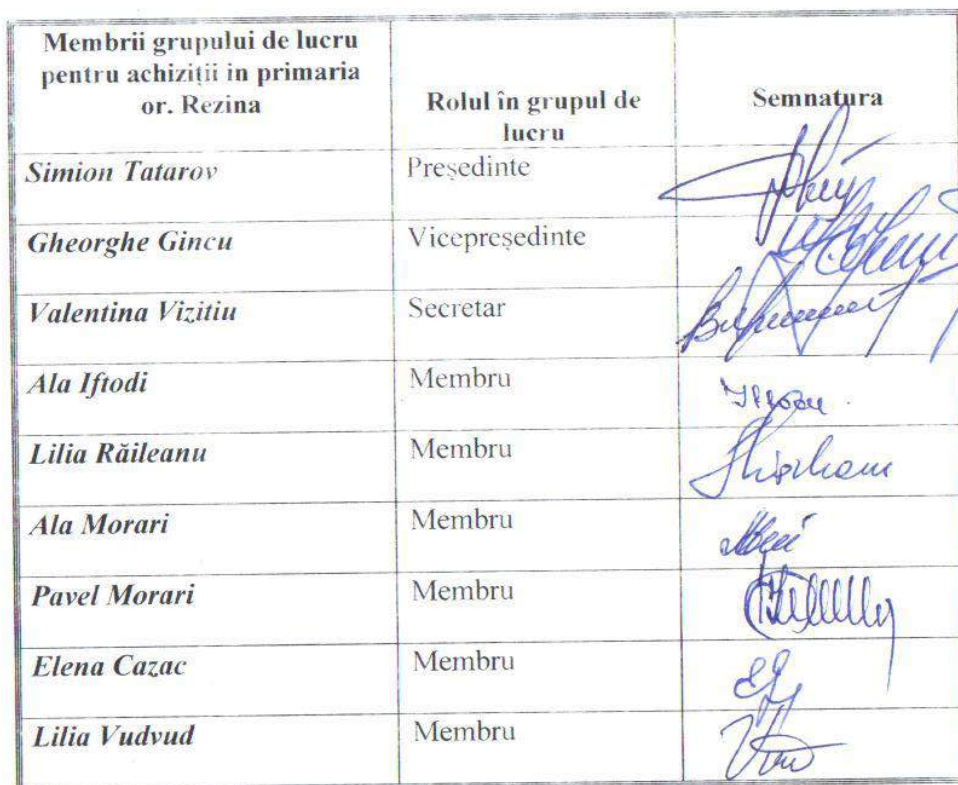 Membrii grupului de lucru
pentru achiziții in primaria
or. Rezina
Rolul în grupul de
lucru
Semnatura
Simion Tatarov Președinte
Gheorghe Gincu Vicepreședinte
Valentina Vizitiu Secretar
Ala Iftodi Membru
Lilia Răileanu Membru
Ala Morari Membru
Pavel Morari Membru
Elena Cazac Membru
Lilia Vudvud Membru